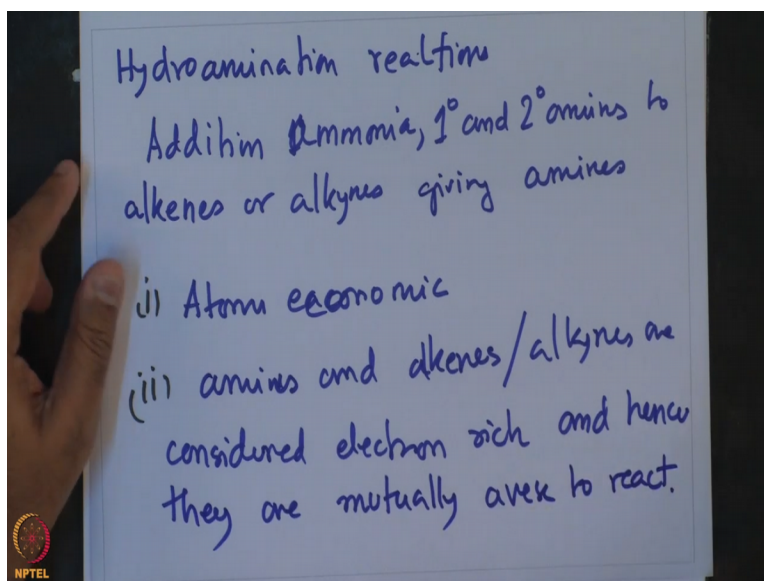 Hydroamination realtions
Addition Ammonia, 1° and 2° amins to
alkenes or alkynes giving amines
(i) Atom economic
(ii) amines and alkenes/alkynes are
considered electron rich and hence
they are mutually averse to react.
NPTEL